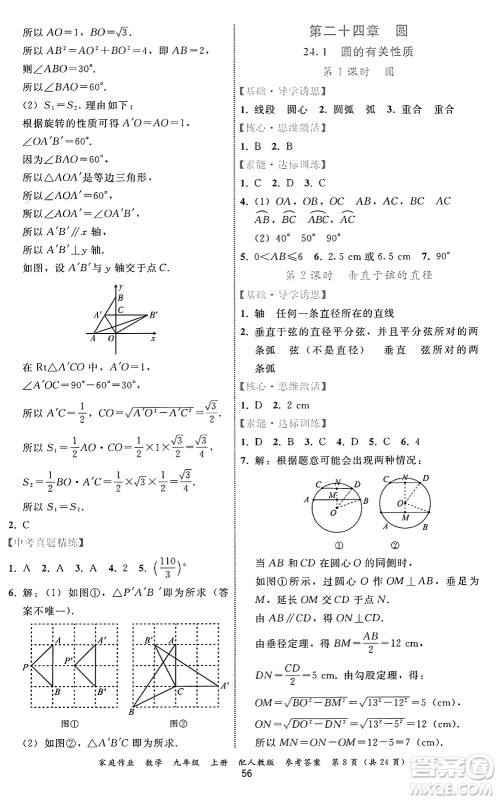 所以 AB²＋AO²＝BO².
所以∠BAO＝90°.
所以△ABO 为直角三角形.
（2）S₁＝S₂. 理由如下：
根据旋转的性质可得 A′O＝AO，
∠OA′B′＝∠BAO＝90°.
因为∠BAO＝60°，
所以△AOA′是等边三角形.
所以∠AOA′＝∠OAA′＝60°.
所以 A′B′∥x 轴.
所以 A′B′⊥y 轴.
如图，设 A′B′与 y 轴交于点 C.
y
B
A′
C
B′
A
O
x
在 Rt△A′CO 中，A′O＝1，
∠A′OC＝90°－60°＝30°，
所以 A′C＝1/2，OC＝√(A′O²－A′C²)＝√3/2.
所以 S₁＝1/2AO·OC＝1/2×1×√3/2＝√3/4，
S₂＝1/2A′C·BO＝1/2×√3×1/2＝√3/4.
所以 S₁＝S₂.
2. C
【中考真题精练】
1. A 2. A 3. A 4. 2 5. (110/3)°
6. 解：（1）如图①，△P′A′B′即为所求（答
案不唯一）.
图① 图②
（2）如图②，△P′A′B′即为所求.
第二十四章 圆
24.1 圆的有关性质
第 1 课时 圆
【基础·导学诱思】
1. 线段 圆心 2. 圆弧 弧 3. 重合 重合
【核心·思维激活】
1. B 2. B
【素能·达标训练】
1. C 2. D 3. C
4. （1）OA，OB，OC AB，BC，AC
AB，BC，BAC，ABC，ACB
（2）40° 50° 90°
5. 0＜AB≤6 6. 2.5 cm 或 6.5 cm
第 2 课时 垂直于弦的直径
【基础·导学诱思】
1. 轴 任何一条直径所在的直线
2. 垂直于弦的直径平分弦，并且平分弦所对的两
条弧 弦（不是直径） 垂直于弦 弦所对的两
条弧
【核心·思维激活】
1. D 2. 2 cm
【素能·达标训练】
1. B 2. B 3. D 4. D 5. C 6. 4
7. 解：根据题意可能会出现两种情况：
① ②
当 AB 与 CD 在圆心的同侧时，
如图①，过点 O 作 OM⊥AB 于点 M，交 CD
于点 N，连接 OB，OD.
因为 AB∥CD，所以 ON⊥CD.
由垂径定理，得 BM＝AB/2＝12(cm)，
DN＝CD/2＝5(cm). 由勾股定理，得
OM＝√(BO²－BM²)＝√(13²－12²)＝5(cm)，
ON＝√(DO²－DN²)＝√(13²－5²)＝12(cm).
家庭作业 数学 九年级 上册 配人教版 参考答案 第 8 页（共 24 页）
56